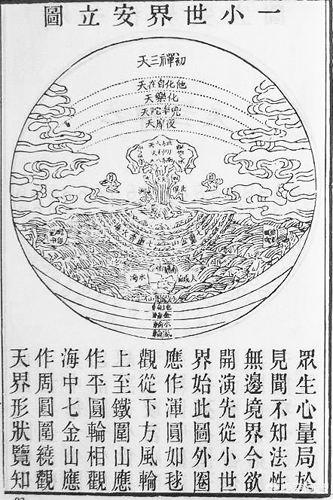 一小世界安立圖
初禪三天
他化自在天
化樂天
兜率陀天
夜摩天
眾生心量局於
見聞不知法性
無邊境界今欲
開演先從小世
界始此圖外圈
應作渾圓如毬
觀從下方風輪
上至鐵圍山應
作平圓輪相觀
海中七金山應
作周圓圍繞觀
天界形狀覽知